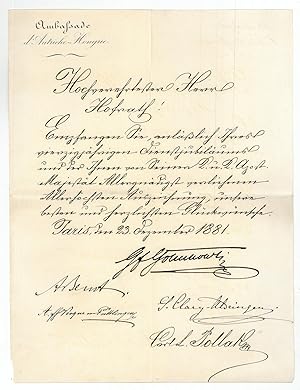 Ambassade
d'Autriche-Hongrie
Hochverehrtester Herr
Hofrath!
Empfangen Sie, anläßlich Ihres
vierzigjährigen Dienstjubiläums
und der Ihnen von Seiner K. u. K. Apost.
Majestät Allergnädigst verliehenen
Allerhöchsten Auszeichnung, unsere
besten und herzlichsten Glückwünsche.
Paris, den 23. Dezember 1881.
ABeust.
Clary Aldringen
Pollak